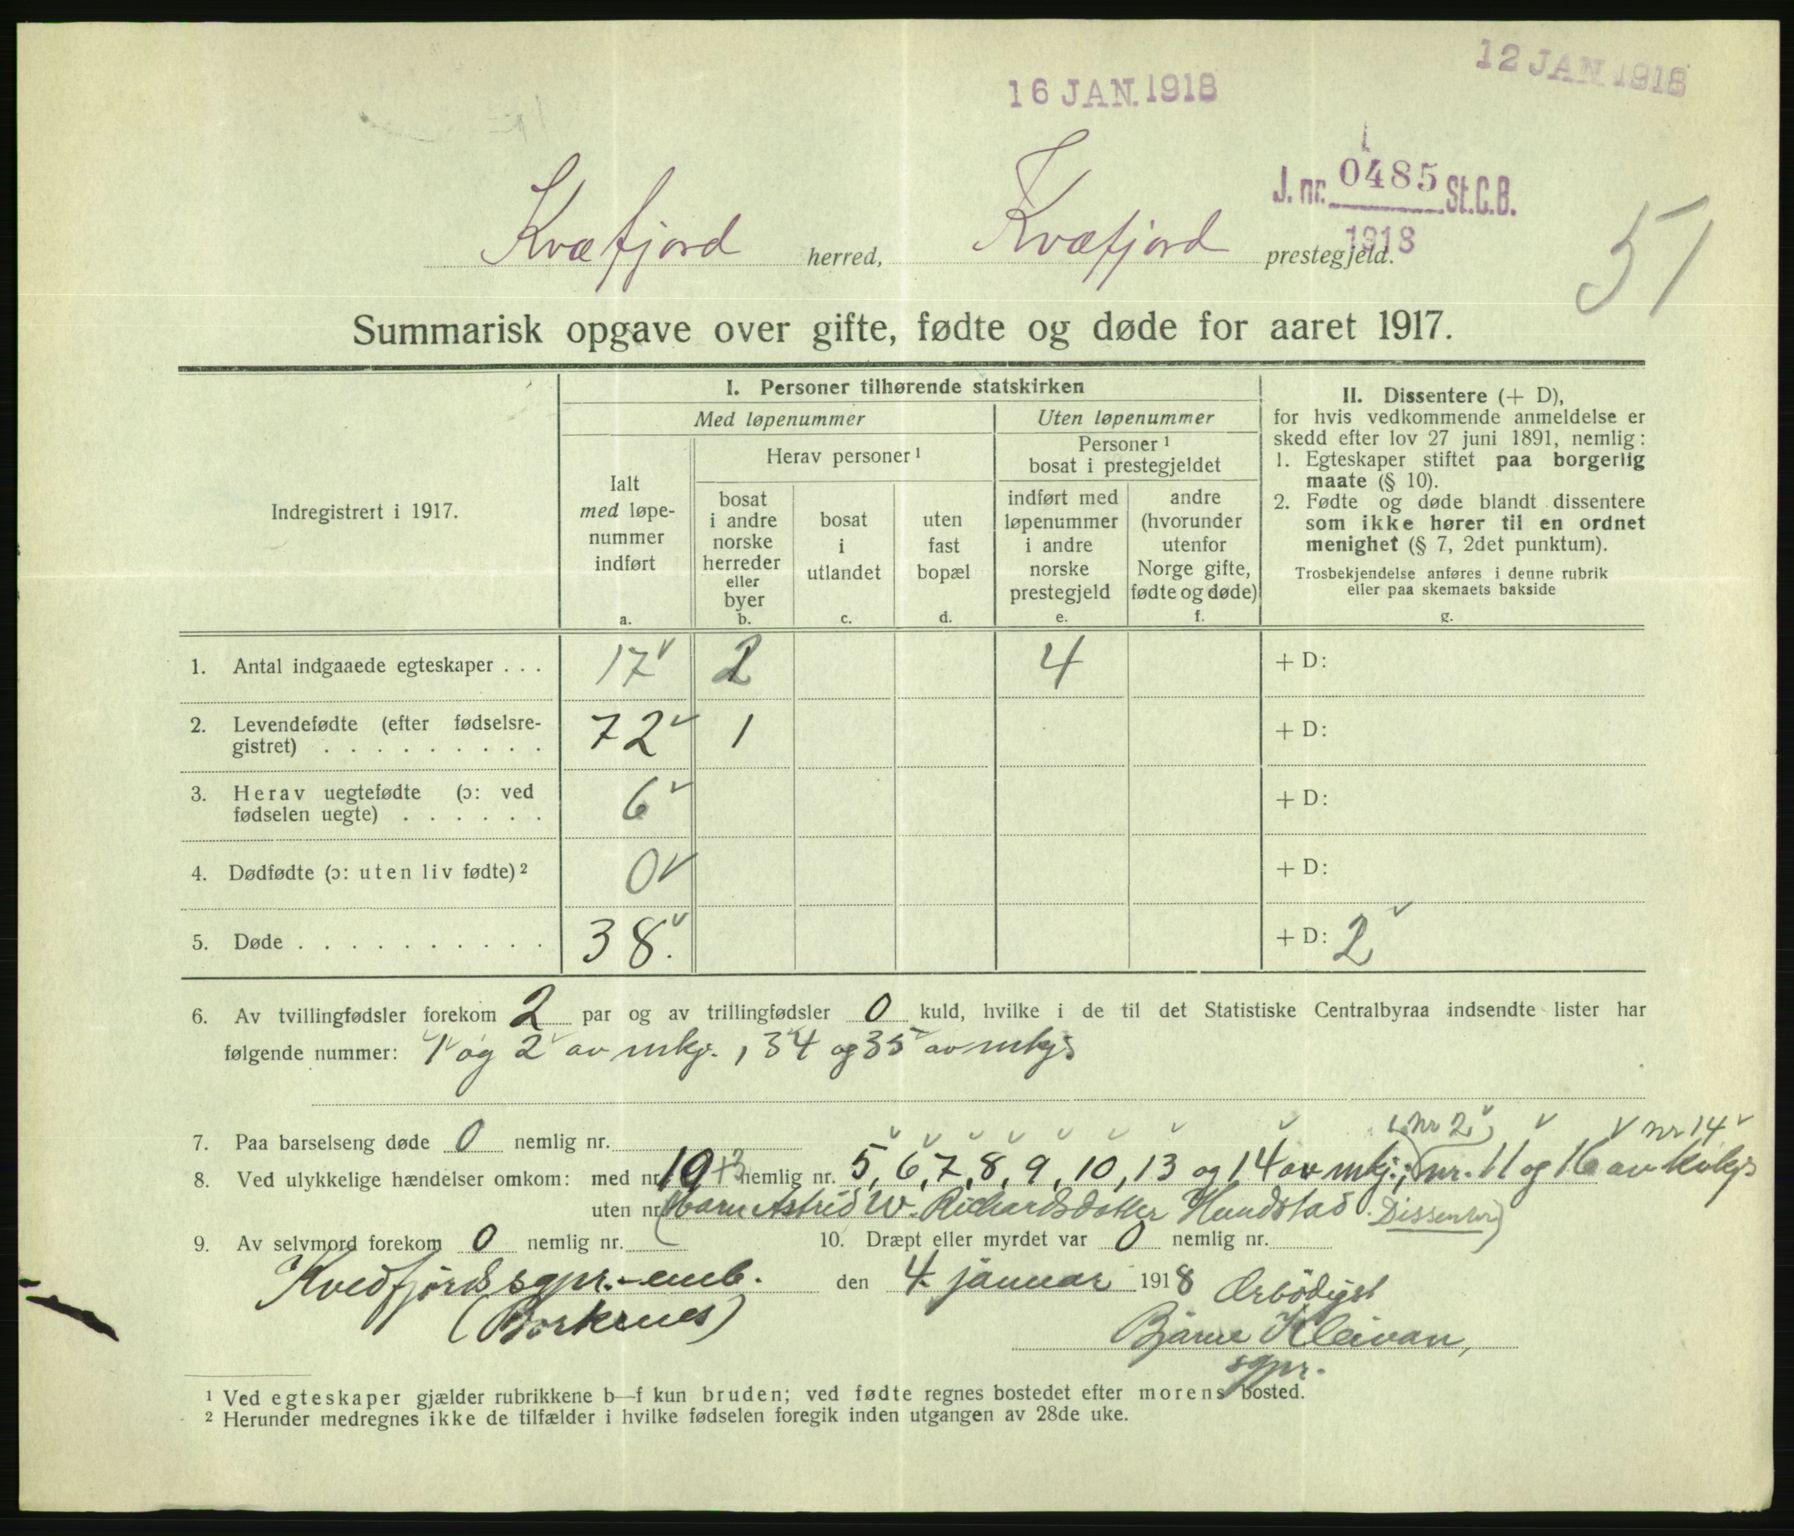 12 JAN 1918
16 JAN. 1918
J. nr. 0485 St.C.B.
1918
51
Kvæfjord herred, Kvæfjord prestegjeld.
Summarisk opgave over gifte, fødte og døde for aaret 1917.
Indregistrert i 1917.
I. Personer tilhørende statskirken
Med løpenummer
Uten løpenummer
Ialt
med løpe-
nummer
indført
a.
Herav personer ¹
bosat
i andre
norske
herreder
eller
byer
b.
bosat
i
utlandet
c.
uten
fast
bopæl
d.
Personer ¹
bosat i prestegjeldet
indført med
løpenummer
i andre
norske
prestegjeld
e.
andre
(hvorunder
utenfor
Norge gifte,
fødte og døde)
f.
II. Dissentere (+ D),
for hvis vedkommende anmeldelse er
skedd efter lov 27 juni 1891, nemlig:
1. Egteskaper stiftet paa borgerlig
maate (§ 10).
2. Fødte og døde blandt dissentere
som ikke hører til en ordnet
menighet (§ 7, 2det punktum).
Trosbekjendelse anføres i denne rubrik
eller paa skemaets bakside
g.
1. Antal indgaaede egteskaper . . . 17 2 4 + D:
2. Levendefødte (efter fødselsre-
gistret) . . . . . . . . . 72 1 + D:
3. Herav uegtefødte (ɔ: ved
fødselen uegte) . . . . . . 6 + D:
4. Dødfødte (ɔ: uten liv fødte) ² 0 + D:
5. Døde . . . . . . . . . . 38. + D: 2
6. Av tvillingfødsler forekom 2 par og av trillingfødsler 0 kuld, hvilke i de til det Statistiske Centralbyraa indsendte lister har
følgende nummer: 1 og 2 av mkj., 34 og 35 av mkj;
7. Paa barselseng døde 0 nemlig nr.
nr 2, nr 14
8. Ved ulykkelige hændelser omkom: med nr. 10 +3 nemlig nr. 5, 6, 7, 8, 9, 10, 13 og 14 av mkj.; nr. 11 og 16 av kvkj;
uten nr. Astrid W. Richardsdatter Hundstad. Dissenter)
9. Av selvmord forekom 0 nemlig nr. 10. Dræpt eller myrdet var 0 nemlig nr.
Kvedfjords sgpr.-emb. den 4. januar 1918 Ærbödigst
(Borkenes)
Bjarne Kleivan,
sgpr.
¹ Ved egteskaper gjælder rubrikkene b—f kun bruden; ved fødte regnes bostedet efter morens bosted.
² Herunder medregnes ikke de tilfælder i hvilke fødselen foregik inden utgangen av 28de uke.